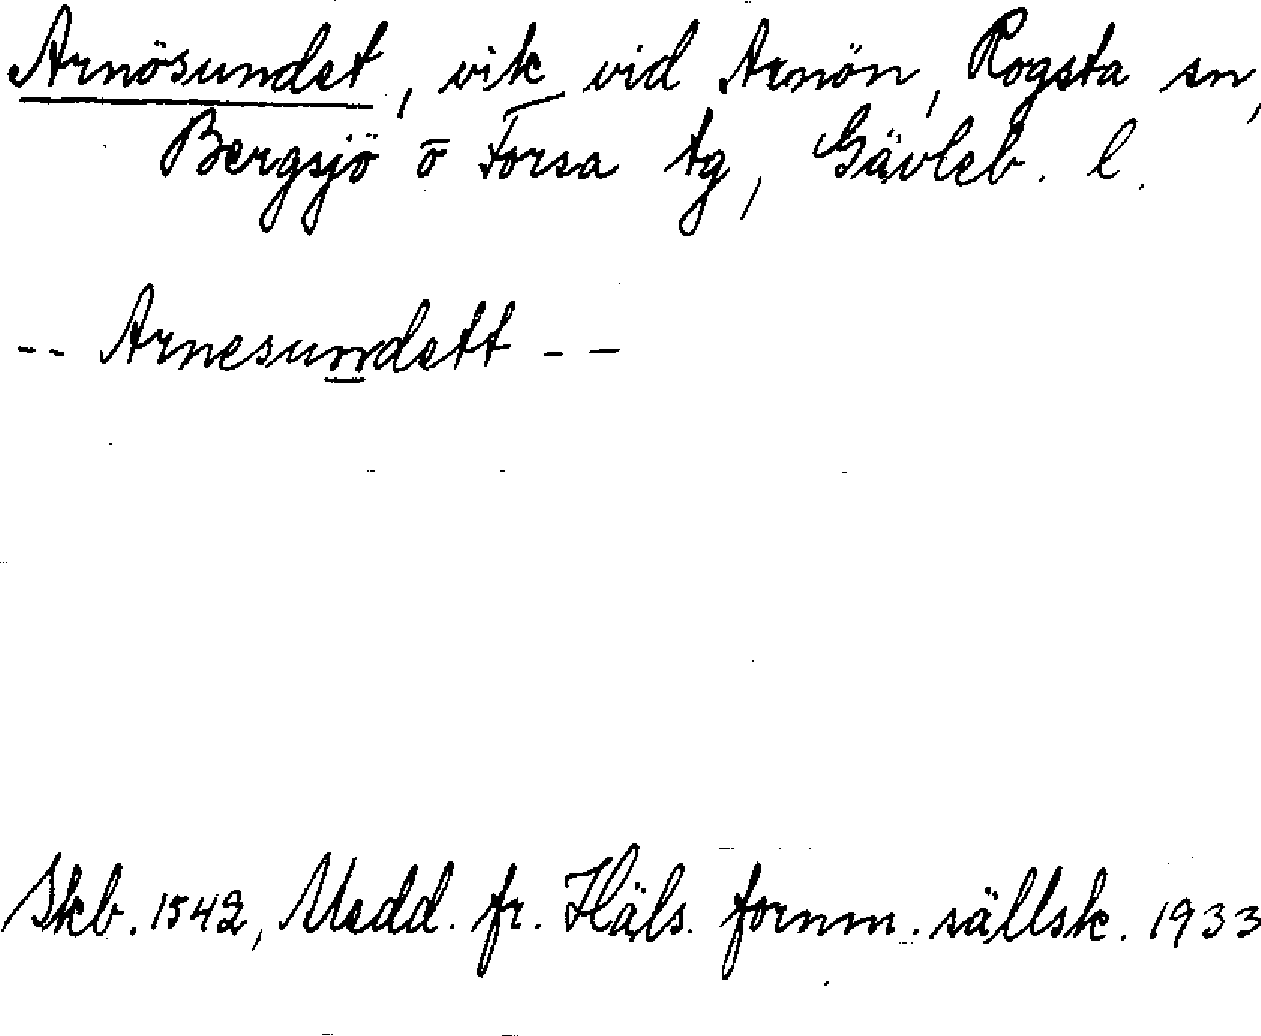 Arnösundet, vik vid Arnön, Rogsta sn,
Bergsjö o Forsa tg, Gävleb. l.
-- Arnesundett --
Skb. 1542, Medd. fr. Häls. fornm. sällsk. 1933